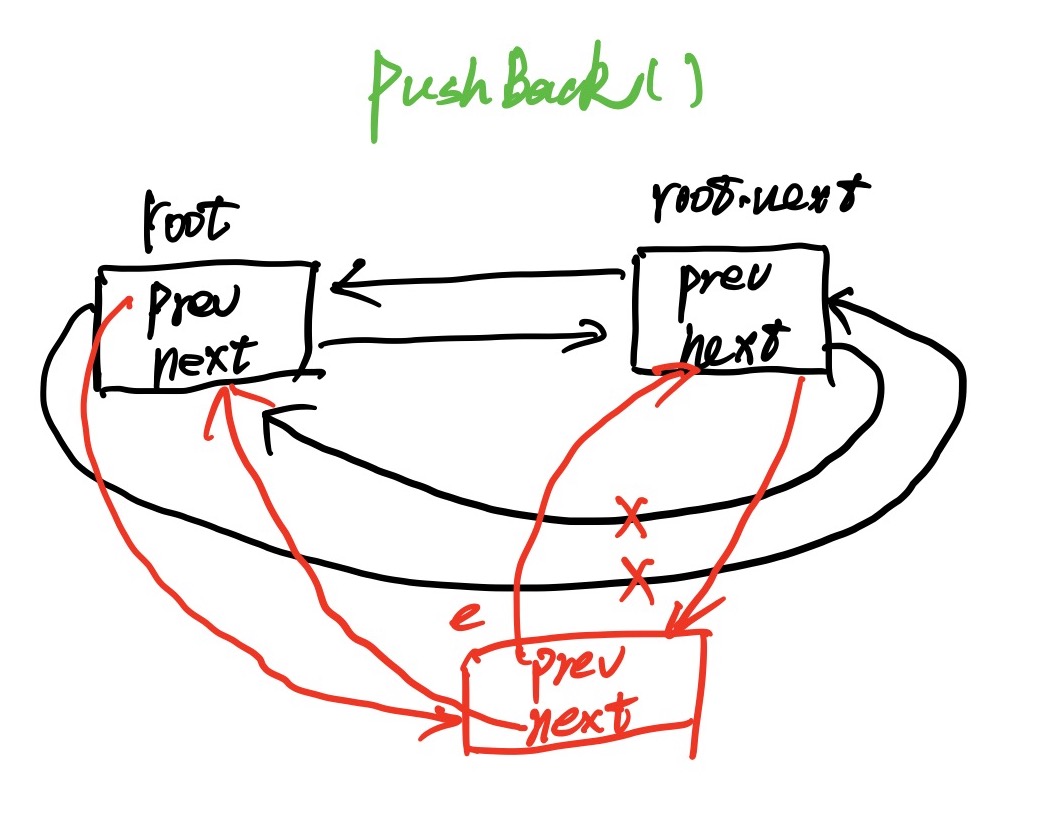 PushBack()
root
root.next
prev
next
prev
next
X
X
e
prev
next